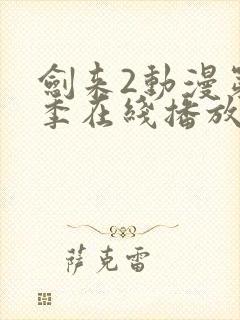 劍來2動漫第
季在綫播放
薩克雷